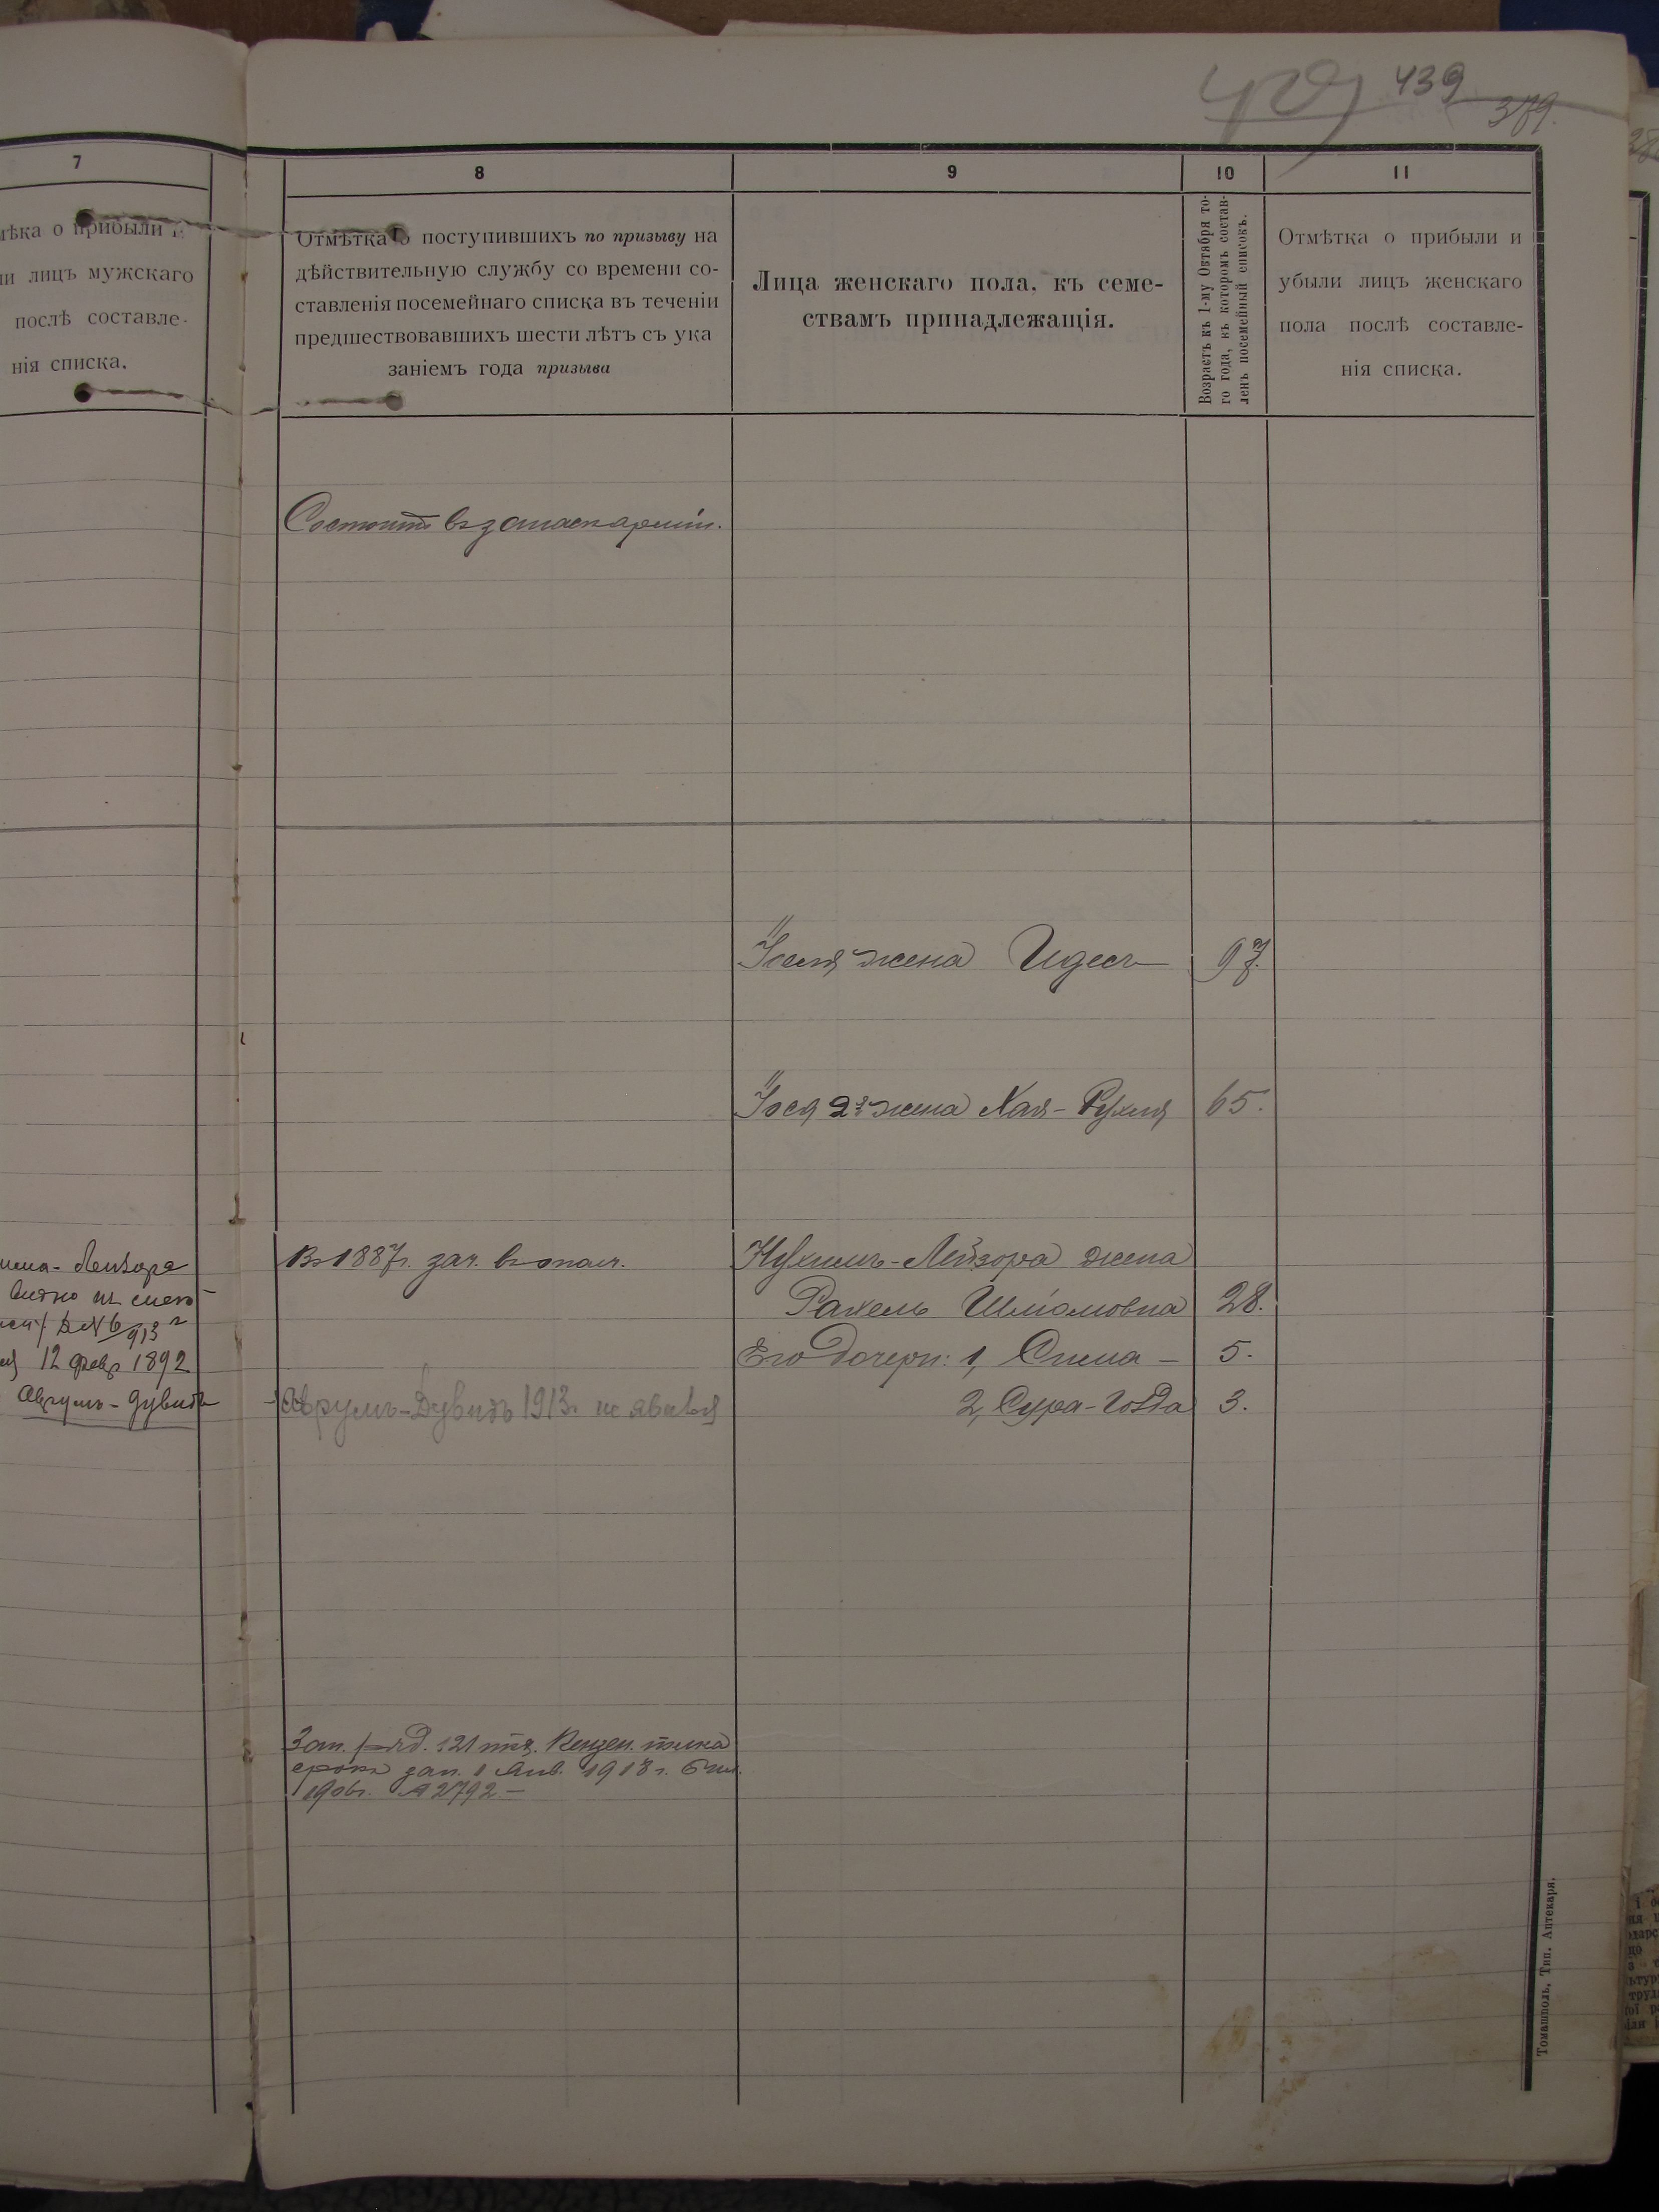 439
379.
7
ѣка о прибыли и
и лицъ мужскаго
послѣ составле-
нія списка.
8
Отмѣтка о поступившихъ по призыву на
дѣйствительную службу со времени со-
ставленія посемейнаго списка въ теченіи
предшествовавшихъ шести лѣтъ съ ука
заніемъ года призыва
9
Лица женскаго пола, къ семе-
ствамъ принадлежащія.
10
Возрастъ къ 1-му Октября то-
го года, къ которомъ состав-
ленъ посемейный списокъ.
11
Отмѣтка о прибыли и
убыли лицъ женскаго
пола послѣ составле-
нія списка.
Состоитъ въ запасѣ арміи.
жена Идесъ 97.
2я жена Хая-Рухля 65.
Лейзора
12 февр 1892
Аврумъ-Дувидъ
Въ 1887г. зач. въ опол.
Аврумъ-Дувидъ 1913г не явился
Нухимъ-Лейзора жена
Рахель Шліомовна 28.
Его дочери: 1, Сима — 5.
2, Сура-Голда 3.
Зап. ряд. 121 пѣх. Пензен. полка
срокъ зап. 1 Янв. 1913 г.
1906г. № 2792 —
Томашполь, Тип. Аптекаря.